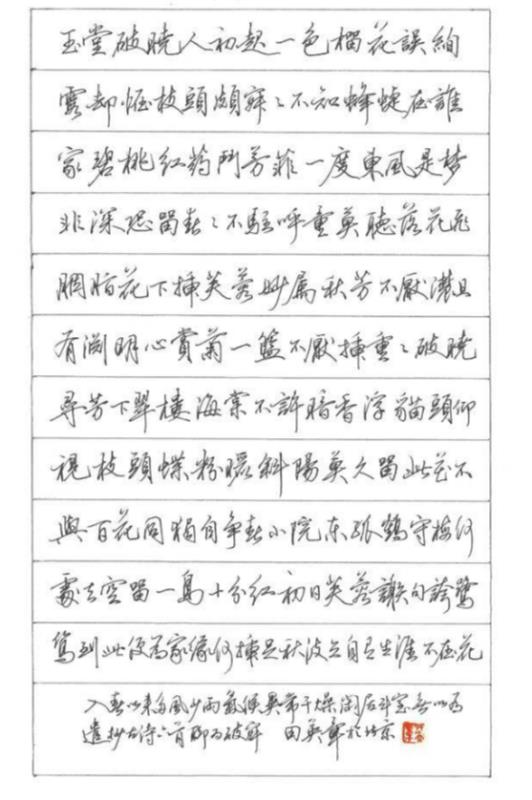 玉堂破曉人初起一色榴花誤絢
霞却怪枝頭頻寂々不知蜂蜨在誰
家碧桃紅药鬥芳菲一度東風是梦
非深恐留春々不駐呼童莫聽落花飛
胭脂花下插芙蓉妙属秋芳不厭濃且
有淵明心賞菊一籃不厭插重々破曉
尋芳下翠樓海棠不許暗香浮貓頭仰
視枝頭蝶粉暖斜陽莫久留此花不
與百花同獨自争春小院东孤鶴守梅何
處去空留一鳥十分紅初日芙蓉謝句誇鷺
鷥到此便為家緣何插足秋波立自有生涯不在花
入春以来多風少雨氣候異常干燥閑居斗室無以為
遣抄古诗六首聊为破寂 田英章於北京